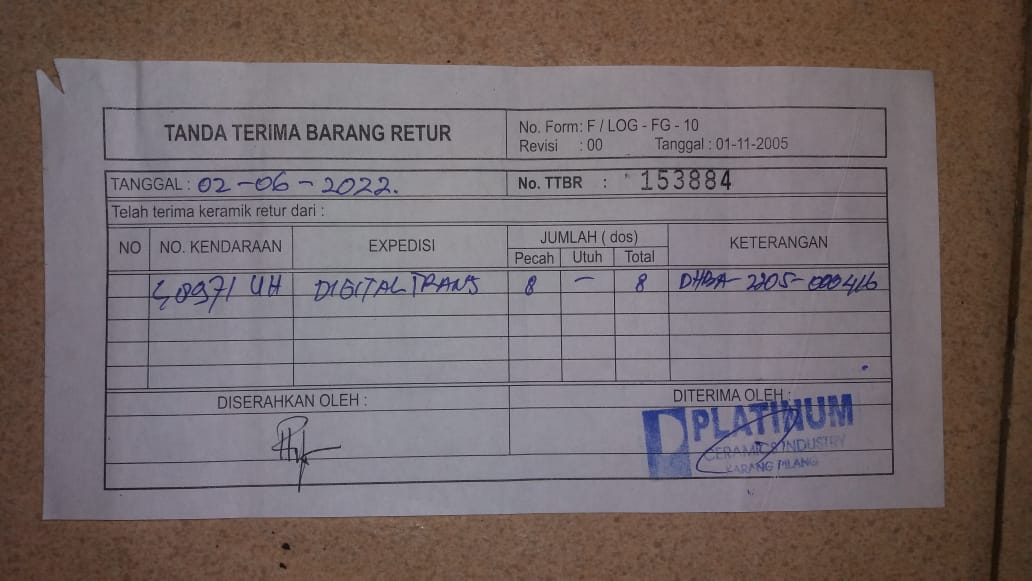 TANDA TERIMA BARANG RETUR
No. Form: F / LOG - FG - 10
Revisi : 00 Tanggal : 01-11-2005
TANGGAL : 02-06-2022.
No. TTBR : 153884
Telah terima keramik retur dari :
NO NO. KENDARAAN EXPEDISI JUMLAH ( dos) KETERANGAN
Pecah Utuh Total
UH DIGITAL TRANS 8 - 8 DHBA-2205-000416
DISERAHKAN OLEH : DITERIMA OLEH :
PLATINUM
CERAMICS INDUSTRY
KARANG PILANG